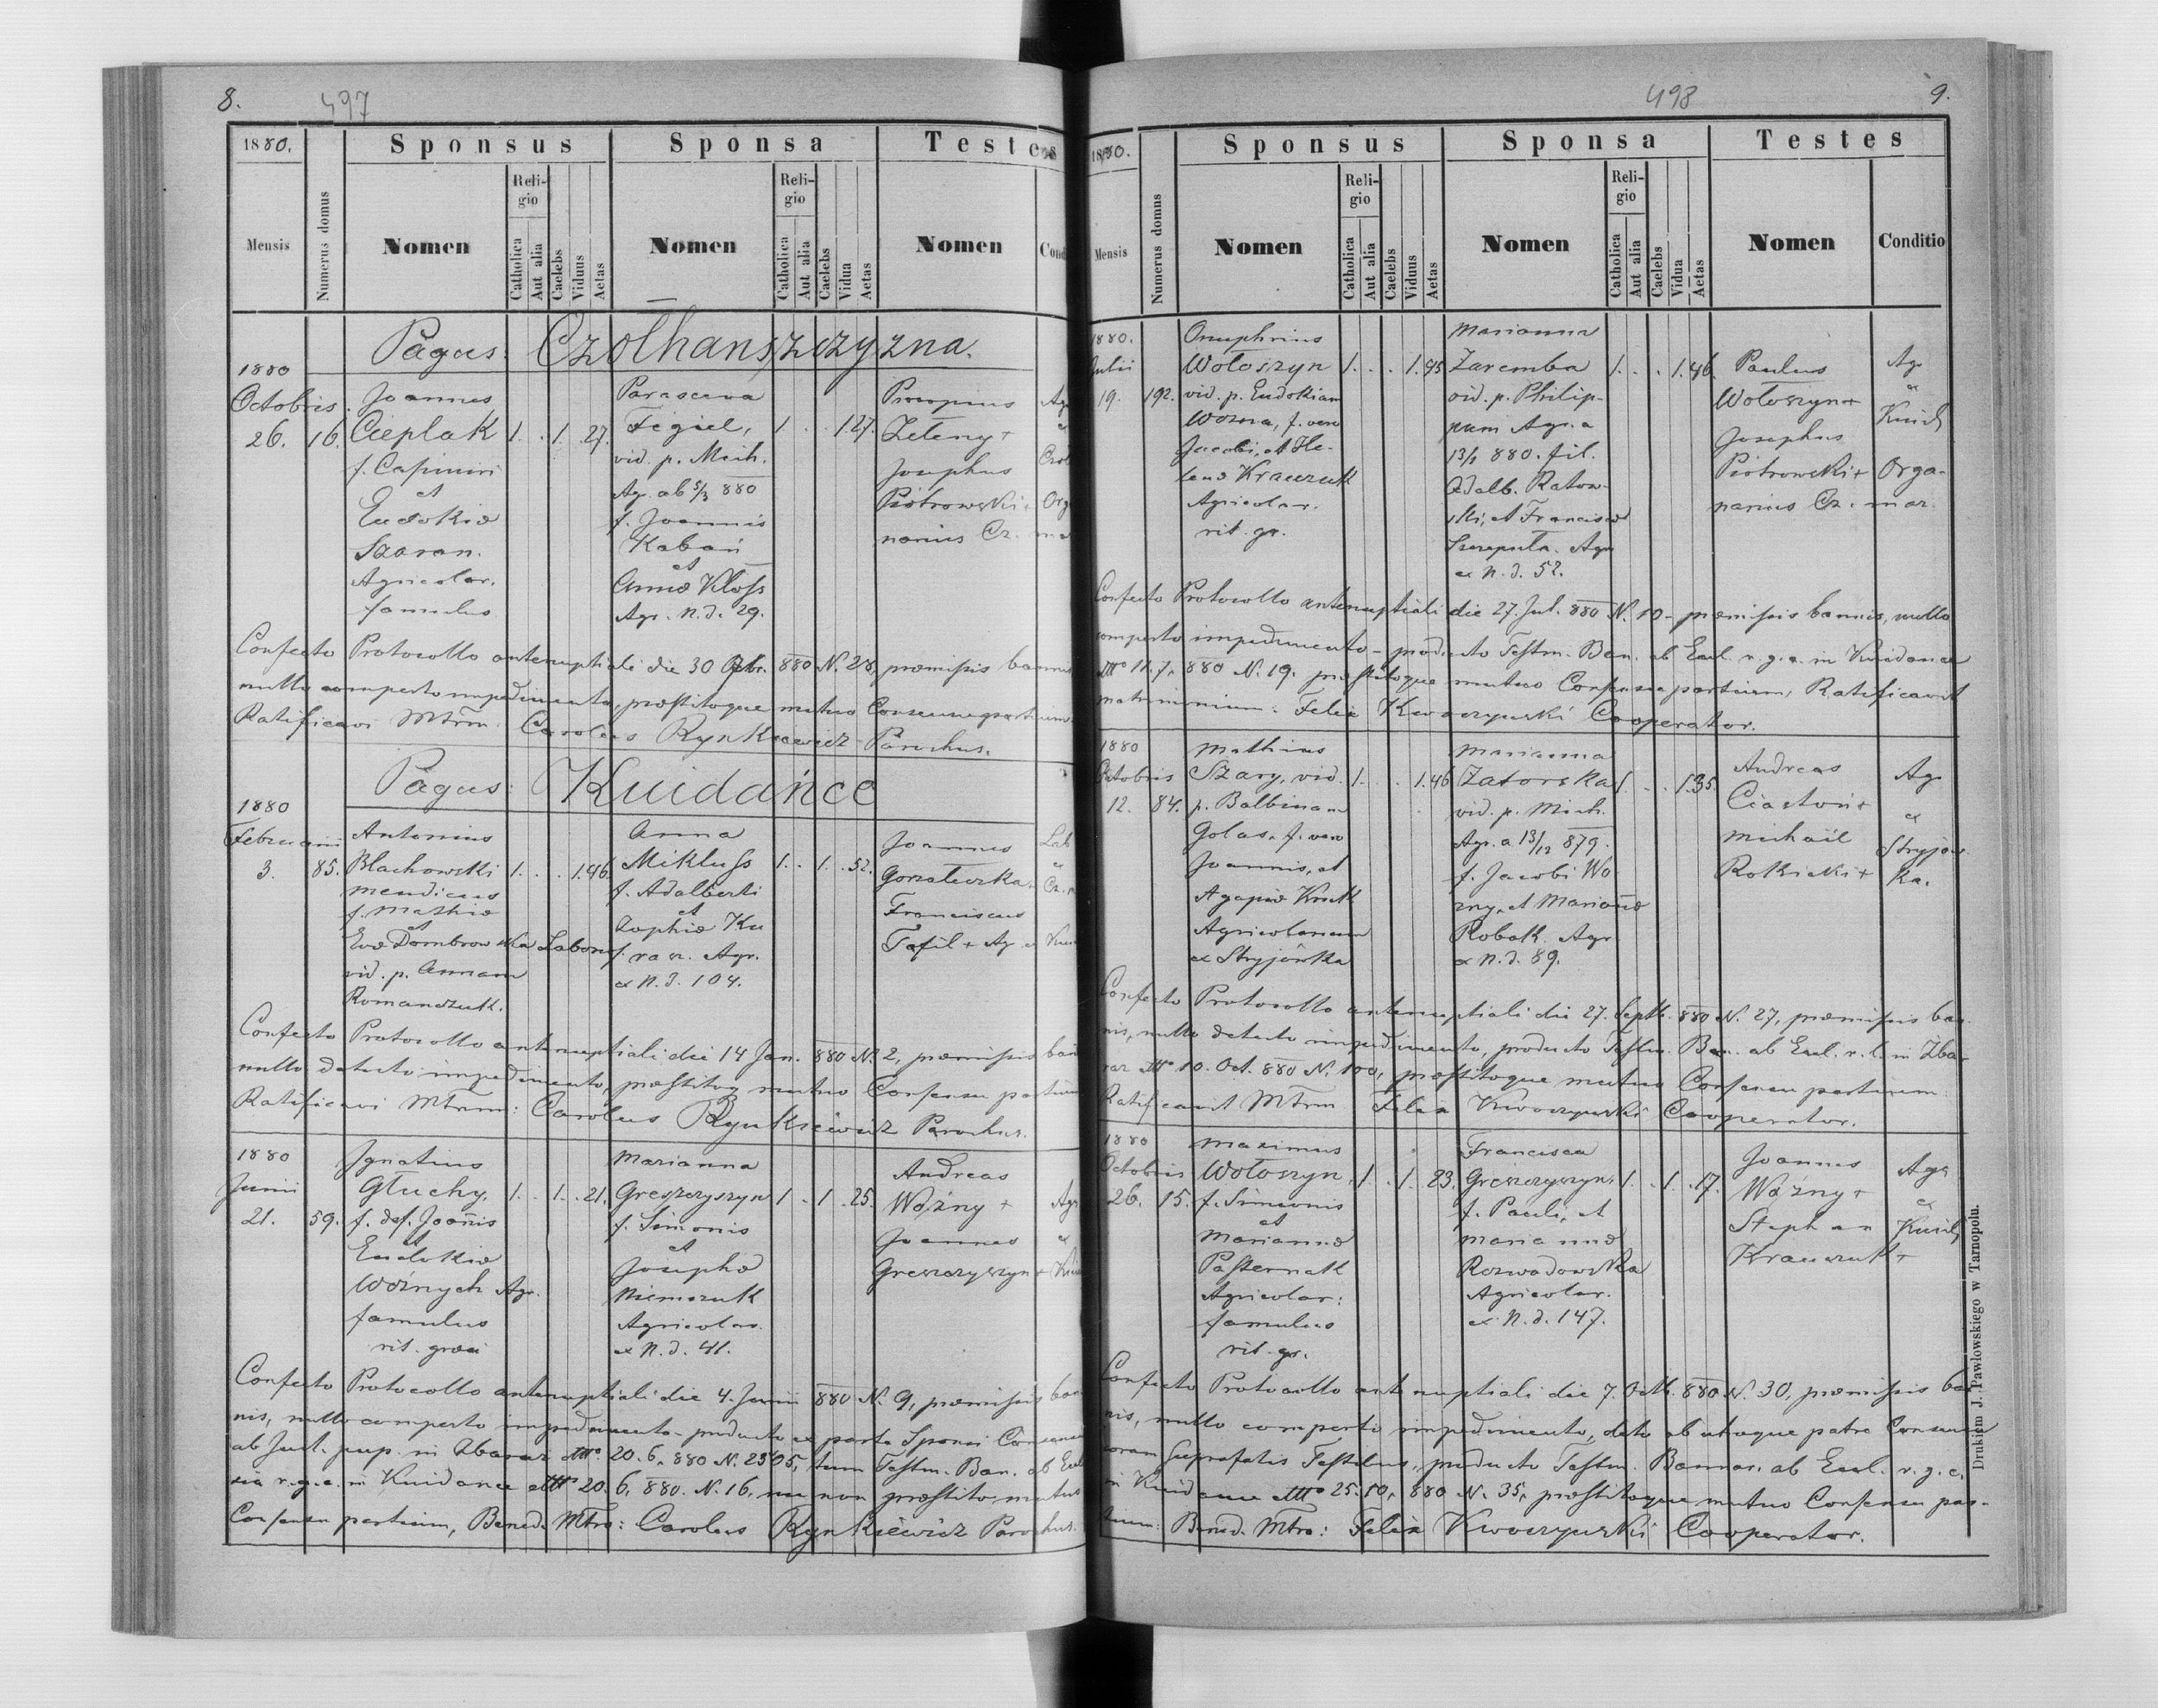 8.
497
1880.
Sponsus
Sponsa
Testes
Mensis
Numerus domus
Nomen
Religio
Catholica
Aut alia
Caelebs
Viduus
Aetas
Nomen
Religio
Catholica
Aut alia
Caelebs
Vidua
Aetas
Nomen
Cond
Pagus: Czołhanszczyzna.
1880
Octobris
26.
16.
Joannes
Cieplak
f. Casimiri
et
Eudokiæ
Szaran.
Agricolar.
famulus
1. . 1. 27.
Parasceva
Figiel,
vid. p. Mich.
Agr. ab 5/3 880
f. Joannis
Kabań
et
Annæ Kloss
Agr. N. d. 29.
1 . . 1. 27.
Procopius
Zełeny +
Josephus
Piotrowski +
narius Cz.
Confecto Protocollo antenuptiali die 30 880 N. 28, præmissis bannis
nullo comperto impedimento, præstitoque mutuo Consensu partium
Ratificavi Mtrm. Carolus Rynkiewicz Parochus.
Pagus: Kuidańce
1880
Februarii
3.
85.
Antonius
Blachowski
mendicus
f. Mathiæ
et
Evæ Dombrowska Labor.
vid. p. Annam
Romanczuk.
1. . . 1. 46.
Anna
Mikluss
f. Adalberti
et
Zophiæ Ku
ras. Agr.
ex N. d. 104.
1. . 1. . 52.
Joannes
Franciscus
Tafil + Agr. ex
Confecto Protocollo antenuptiali die 14 Jan. 880 N. 2, præmissis ban
nullo detecto impedimento, præstitoq mutuo Consensu partium
Ratificavi Mtrm: Carolus Rynkiewicz Parochus.
1880
Junii
21.
59.
Ignatius
Głuchy,
f. def. Joannis
et
Eudokiæ
Woźnych Agr.
famulus
rit. græci
1. . 1. . 21.
Marianna
Greszczyszyn
f. Simonis
et
Josephæ
Niemczuk
Agricolar.
ex N. d. 41.
1 . 1. 25.
Andreas
Woźny +
Joannes
Greszczyszyn +
Confecto Protocollo antenuptiali die 4. Junii 880 N. 9, præmissis ban
nis, nullo comperto impedimento, producto ex parte Sponsi Consensu
ab Jud. pup. in Zbaraz dtto 20. 6. 880 N. 2505, tum Testm. Ban. ab Eccl
sia r. g. c. in Kuidance dtto 20. 6. 880. N. 16, nec non præstito mutuo
Consensu partium, Bened. Mtro: Carolus Rynkiewicz Parochus.
498
9.
1880.
Sponsus
Sponsa
Testes
Mensis
Numerus domus
Nomen
Religio
Catholica
Aut alia
Caelebs
Viduus
Aetas
Nomen
Religio
Catholica
Aut alia
Caelebs
Vidua
Aetas
Nomen
Conditio
1880.
Julii
19.
192.
Onuphrius
Wołoszyn
vid. p. Eudokiam
Wozna, f. vero
Jacobi, et He-
lenæ Krawczuk
Agricolar.
rit. gr.
1. . . 1. 45
Marianna
Zaremba
vid. p. Philip-
pum Agr. a
13/1 880. fil.
Adalb. Ratow-
ski, et Franciscæ
Szczepula. Agr
ex N. d. 52.
1. . . 1. 46.
Paulus
Wołoszyn +
Josephus
Piotrowski +
narius Cz.
Agr
ex
Kuid
Orga-
mar.
Confecto Protocollo antenuptiali die 27. Jul. 880 N. 10 - præmissis bannis, nullo
comperto impedimento - producto Testm. Ban. ab Eccl. r. g. c. in Kuidance
dtto 11. 7. 880 N. 19. præstitoque mutuo Consensu partium, Ratificavit
matrimonium: Felix Kwoczyński Cooperator.
1880
Octobris
12.
84.
Mathias
Szary, vid.
p. Balbinam
Golas, f. vero
Joannis, et
Agapiæ Kruk
Agricolarum
ex Stryjówka
1. . . 1. 46
Marianna
Zatorska
vid. p. Mich.
Agr. a 13/12 879.
f. Jacobi Wo
zny, et Mariannæ
Robak. Agr.
ex N. d. 89.
1. . . 1. 35.
Andreas
Ciastoń +
Michaël
Rokicki +
Agr
ex
Stryjów-
ka.
Confecto Protocollo antenuptiali die 27. Septb. 880 N. 27, præmissis ban
nis, nullo detecto impedimento, producto Testm. Ban. ab Eccl. r. l. in Zba-
raz dtto 10. Oct. 880 N. 100, præstitoque mutuo Consensu partium
Ratificavit Mtrm Felix Kwoczyński Cooperator.
1880
Octobris
26.
15.
Maximus
Wołoszyn,
f. Simeonis
et
Mariannæ
Pasternak
Agricolar:
famulus
rit. gr.
1 . 1. 23.
Francisca
Greszczyszyn,
f. Pauli, et
Mariannæ
Rozwadowska
Agricolar.
ex N. d. 147.
1. . 1. . 17.
Joannes
Woźny +
Stephan
Krawczuk +
Agr
ex
Kuid
Confecto Protocollo antenuptiali die 7. Octb. 880 N. 30, præmissis ban
nis, nullo comperto impedimento, dato ab utroque patre Consensu
coram suprafatis Testibus, producto Testm. Bannor. ab Eccl. r. g. c.
in Kuidance dtto 25. 10. 880 N. 35, præstitoque mutuo Consensu par-
tium: Bened. Mtro: Felix Kwoczyński Cooperator.
Drukiem J. Pawłowskiego w Tarnopolu.